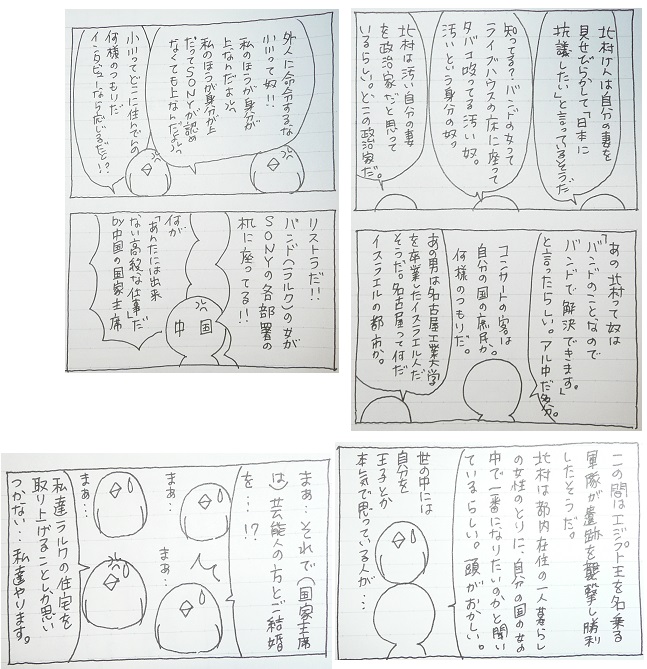 北村けんは自分の妻を
見せびらかして「日本に
抗議したい」と言っているそうだ
知ってる?バンドの女って
ライブハウスの床に座って
タバコ吸ってる汚い奴。
汚いという身分の奴っ
北村は汚い自分の妻
を政治家だと思って
いるらしい。どこの政治家だ。
「あの北村って奴は
バンドのことなので
バンドで解決できます。」
と言ったらしい。アル中だ多分。
コンサートの客は
自分の国の庶民か。
何様のつもりだ。
あの男は名古屋工業大学
を卒業したイスラエル人だ
そうだ。名古屋って何だ
イスラエルの都市か。
外人に命令するな
小川って奴!!
私のほうが身分が
上なんだよっ、
私のほうが身分が上
だってSONYが認め
なくても上なんだよっ、
小川ってどこに住んでんの
何様のつもりだ
インタビューなら応じるだと!?
リストラだ!!
バンド(ラルク)の女が
SONYの各部署の
机に座ってる!!
何が
「あんたには出来
ない高級な仕事」だ
by中国の国家主席
中国
この間はエジプト王を名乗る
軍隊が遺跡を襲撃し勝利
したそうだ。
北村は都内在住の一人暮らし
の女性のとりに、自分の国の女の
中で一番になりたいのかと聞い
ているらしい。頭がおかしい。
世の中には
自分を
王子とか
本気で思っている人が…
まぁ…それで(国家主席
は)芸能人の方とご結婚
を…!?
まぁ…
まぁ…
まぁ…
私達ラルクの住宅を
取り上げることしか思い
つかない…私達やります。